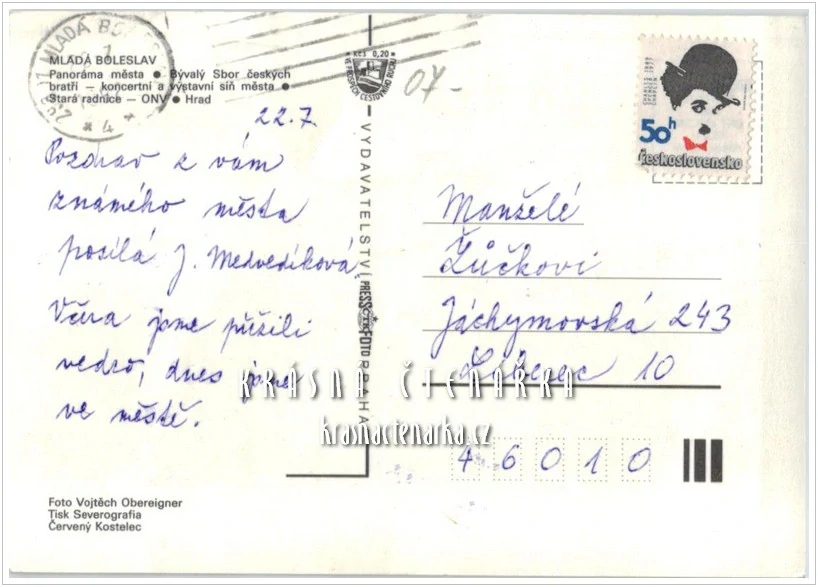 MLADÁ BOLESLAV
Panoráma města ● Bývalý Sbor českých
bratří – koncertní a výstavní síň města ●
Stará radnice – ONV ● Hrad
22.7
Pozdrav z vám
známého města
posílá J. Medvedíková
Včera jsme přežili
vedro, dnes jsme
ve městě.
Foto Vojtěch Obereigner
Tisk Severografia
Červený Kostelec
MLADÁ
4
Kčs 0,20
VE PROSPĚCH CESTOVNÍHO RUCHU
VYDAVATELSTVÍ PRESSFOTO PRAHA
07-
50h
Československo
Manželé
Žůčkovi
Jáchymovská 243
Liberec 10
46010
KRÁSNÁ ČTENÁŘKA
krasnactenarka.cz